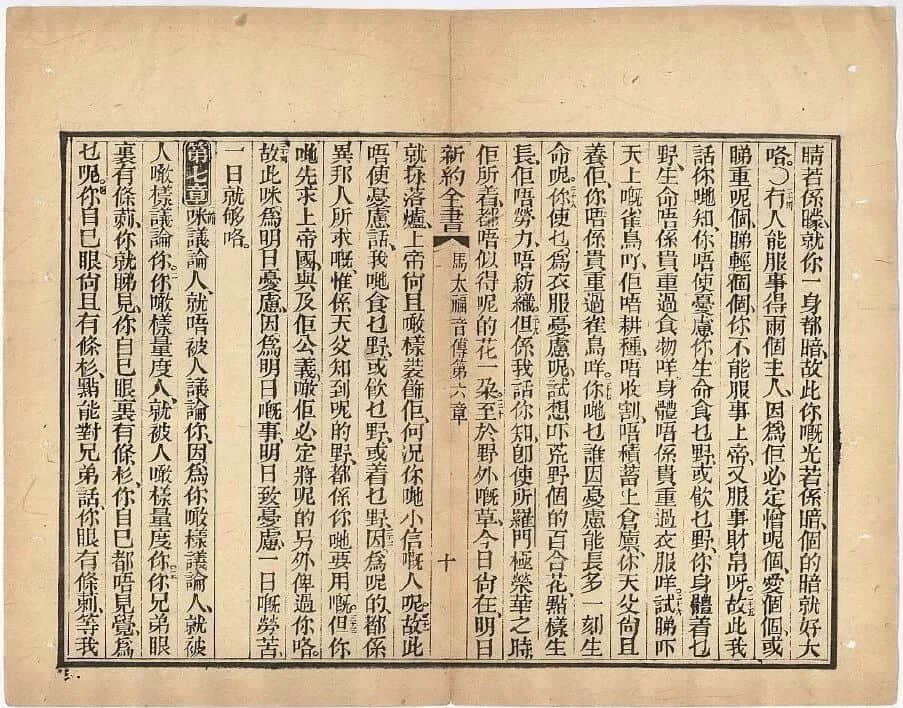 睛若係矇、就你一身都暗、故此你嘅光若係暗、個的暗就好大
咯。〇冇人能服事得兩個主人、因爲佢必定憎呢個、愛個個、或
睇重呢個、睇輕個個、你不能服事上帝、又服事財帛呀。故此我
話你哋知、你唔使憂慮你生命食乜野、或飲乜野、你身體着乜
野、生命唔係貴重過食物咩、身體唔係貴重過衣服咩、試睇吓
天上嘅雀鳥吖、佢唔耕種、唔收割、唔積蓄上倉廪、你天父尙且
養佢、你唔係貴重過雀鳥咩。你哋乜誰因憂慮能長多一刻生
命呢。你使乜爲衣服憂慮呢、試想吓荒野個的百合花、點樣生
長、佢唔勞力、唔紡織。但係我話你知、卽使所羅門極榮華之時、
佢所着都唔似得呢的花一朶。至於野外嘅草、今日尙在、明日
新約全書 馬太福音傳第六章 十
就採落爐、上帝尙且噉樣裝飾佢、何況你哋小信嘅人呢。故此
唔使憂慮話、我哋食乜野、或飲乜野、或着乜野、因爲呢的、都係
異邦人所求嘅、惟係天父知到呢的野、都係你哋要用嘅。但你
哋先求上帝國、與及佢公義、噉佢必定將呢的另外俾過你咯。
故此咪爲明日憂慮、因爲明日嘅事、明日致憂慮、一日嘅勞苦、
一日就够咯。
第七章 咪議論人、就唔被人議論你、因爲你噉樣議論人、就被
人噉樣議論你。你噉樣量度人、就被人噉樣量度你、你兄弟眼
裏有條莿、你就睇見、你自己眼裏有條杉、你自己都唔見覺、爲
乜呢。你自己眼尙且有條杉、點能對兄弟話、你眼有條莿、等我